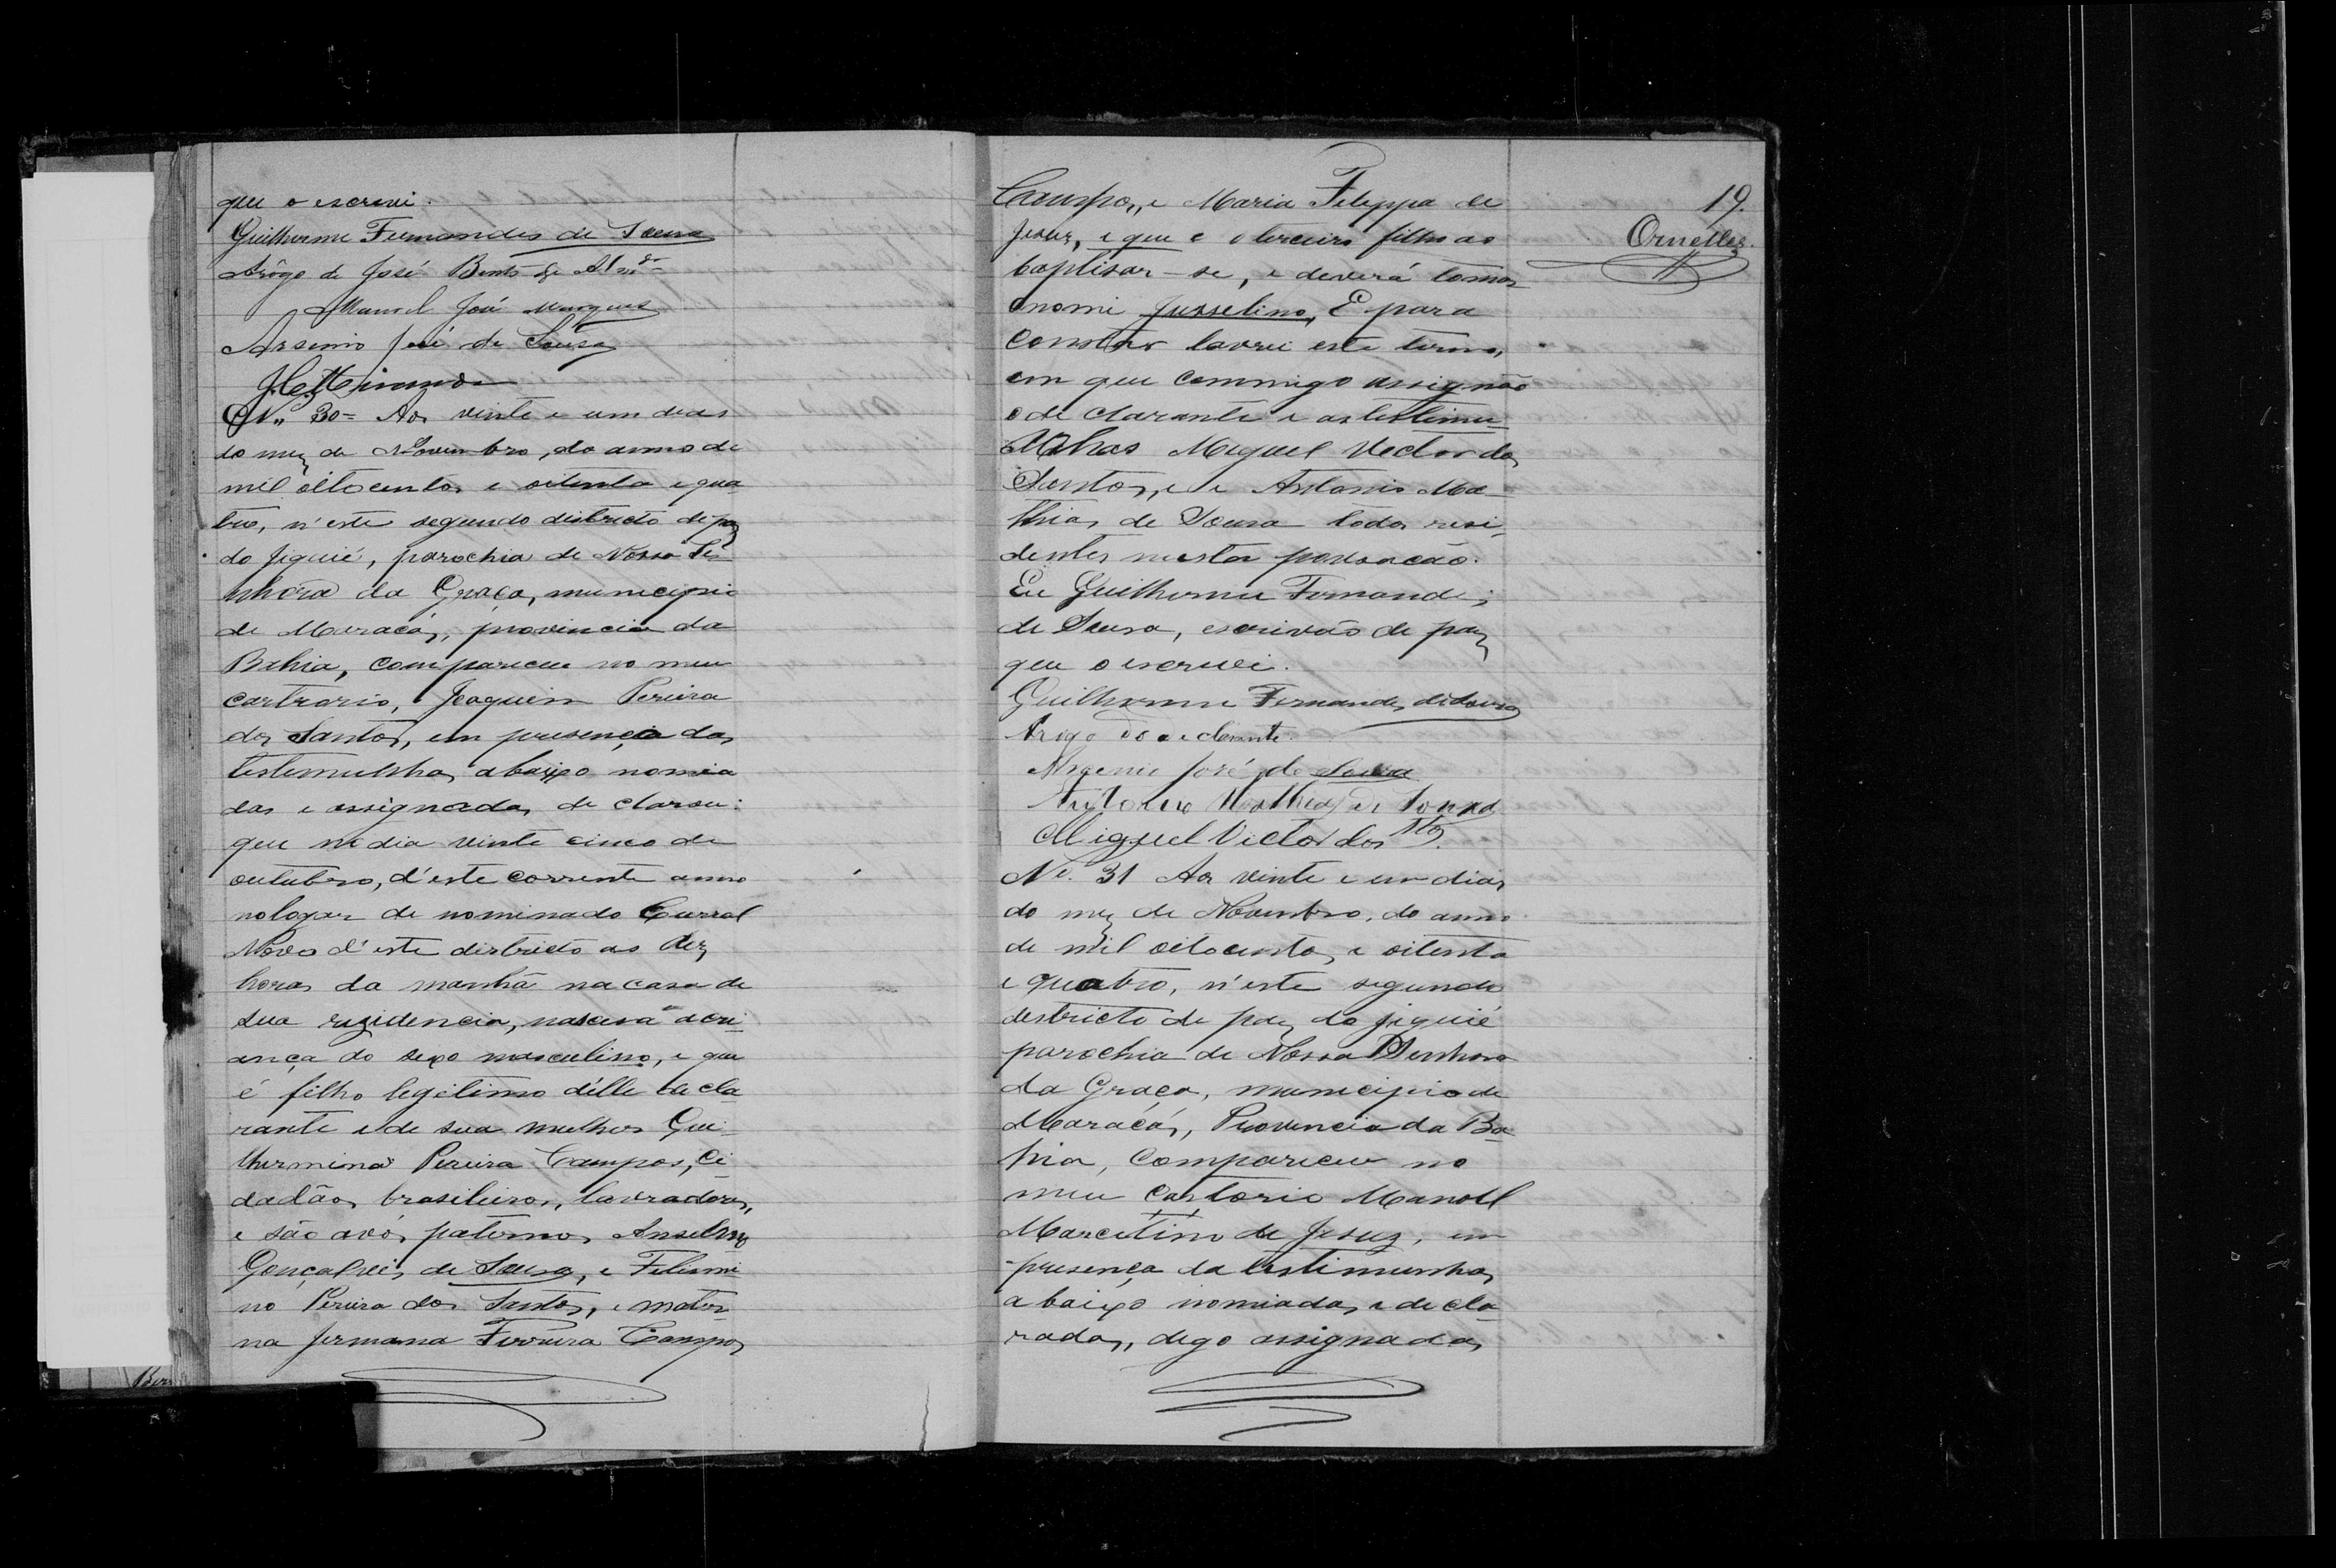 que o escrevi.
Guilherme Fernandes de Sousa
Arôgo de José Bento de Alm.da
Manoel José Marques
Arsenio José de Sousa
N.. 30= Aos vinte e um dias
do mez de Novembro, do anno de
mil oito centos e oitenta e qua
tro, n'este segundo districto de paz
do Jiquié, parochia de Nossa Se-
nhora da Graça, municipio
de Maracás, provincia da
Bahia, compareceu no meu
cartrorio, Joaquim Pereira
dos Santos, em presença das
testemunhas abaixo nomia
das e assignadas de clarou:
que no dia vinte cinco de
outubro, d'este corrente anno
no logar de nominado Curral
Novo d'este districto as dez
horas da manhã na casa de
sua rezidencia, nascera a cri-
ança do sexo masculino, e que
é filho legitimo d'elle de cla
rante e de sua mulher Gui-
lhermina Pereira Campos, Ci
dadãos brasileiros, lavradores,
e são avós paternos Anselmo
Gonçalves de Sousa, e Felismi
no Pereira dos Santos, e mater
na Jermana Ferreira Campos
19.
Ornellas.
Campos, e Maria Felippa de
Jesus, e que e o terceiro filho ao
baptisar-se, e deverá tomar
o nome Jusselino, E para
Constar lavrei este termo,
em que commigo assignão
o de clarante e as testimu-
nhas Miguel Vector dos
Santos, e e Antonio Ma-
thias de Sousa todos resi-
dentes nesta povoacão.
Eu Guilherme Fernandes
de Sousa, escrivão de paz
que o escrevi.
Guilherme Fernandes de Sousa
Arogo do de clarante.
Arsenio José de Sousa
Antonio Mathias de Souza
Miguel Victor dos Stos.
No. 31 Aos vinte e um dias
do mez de Novembro, do anno
de mil oitocentos e oitenta
e quatro, n'este segundo
destricto de paz do Jiquié
parochia de Nossa Senhora
da Graça, municipio de
Maracás, Provincia da Ba-
hia, Compareceu no
meu Cartorio Manoel
Marcelino de Jesus, em
presença da testimunhas
abaixo nomiadas e decla-
radas, digo assignadas